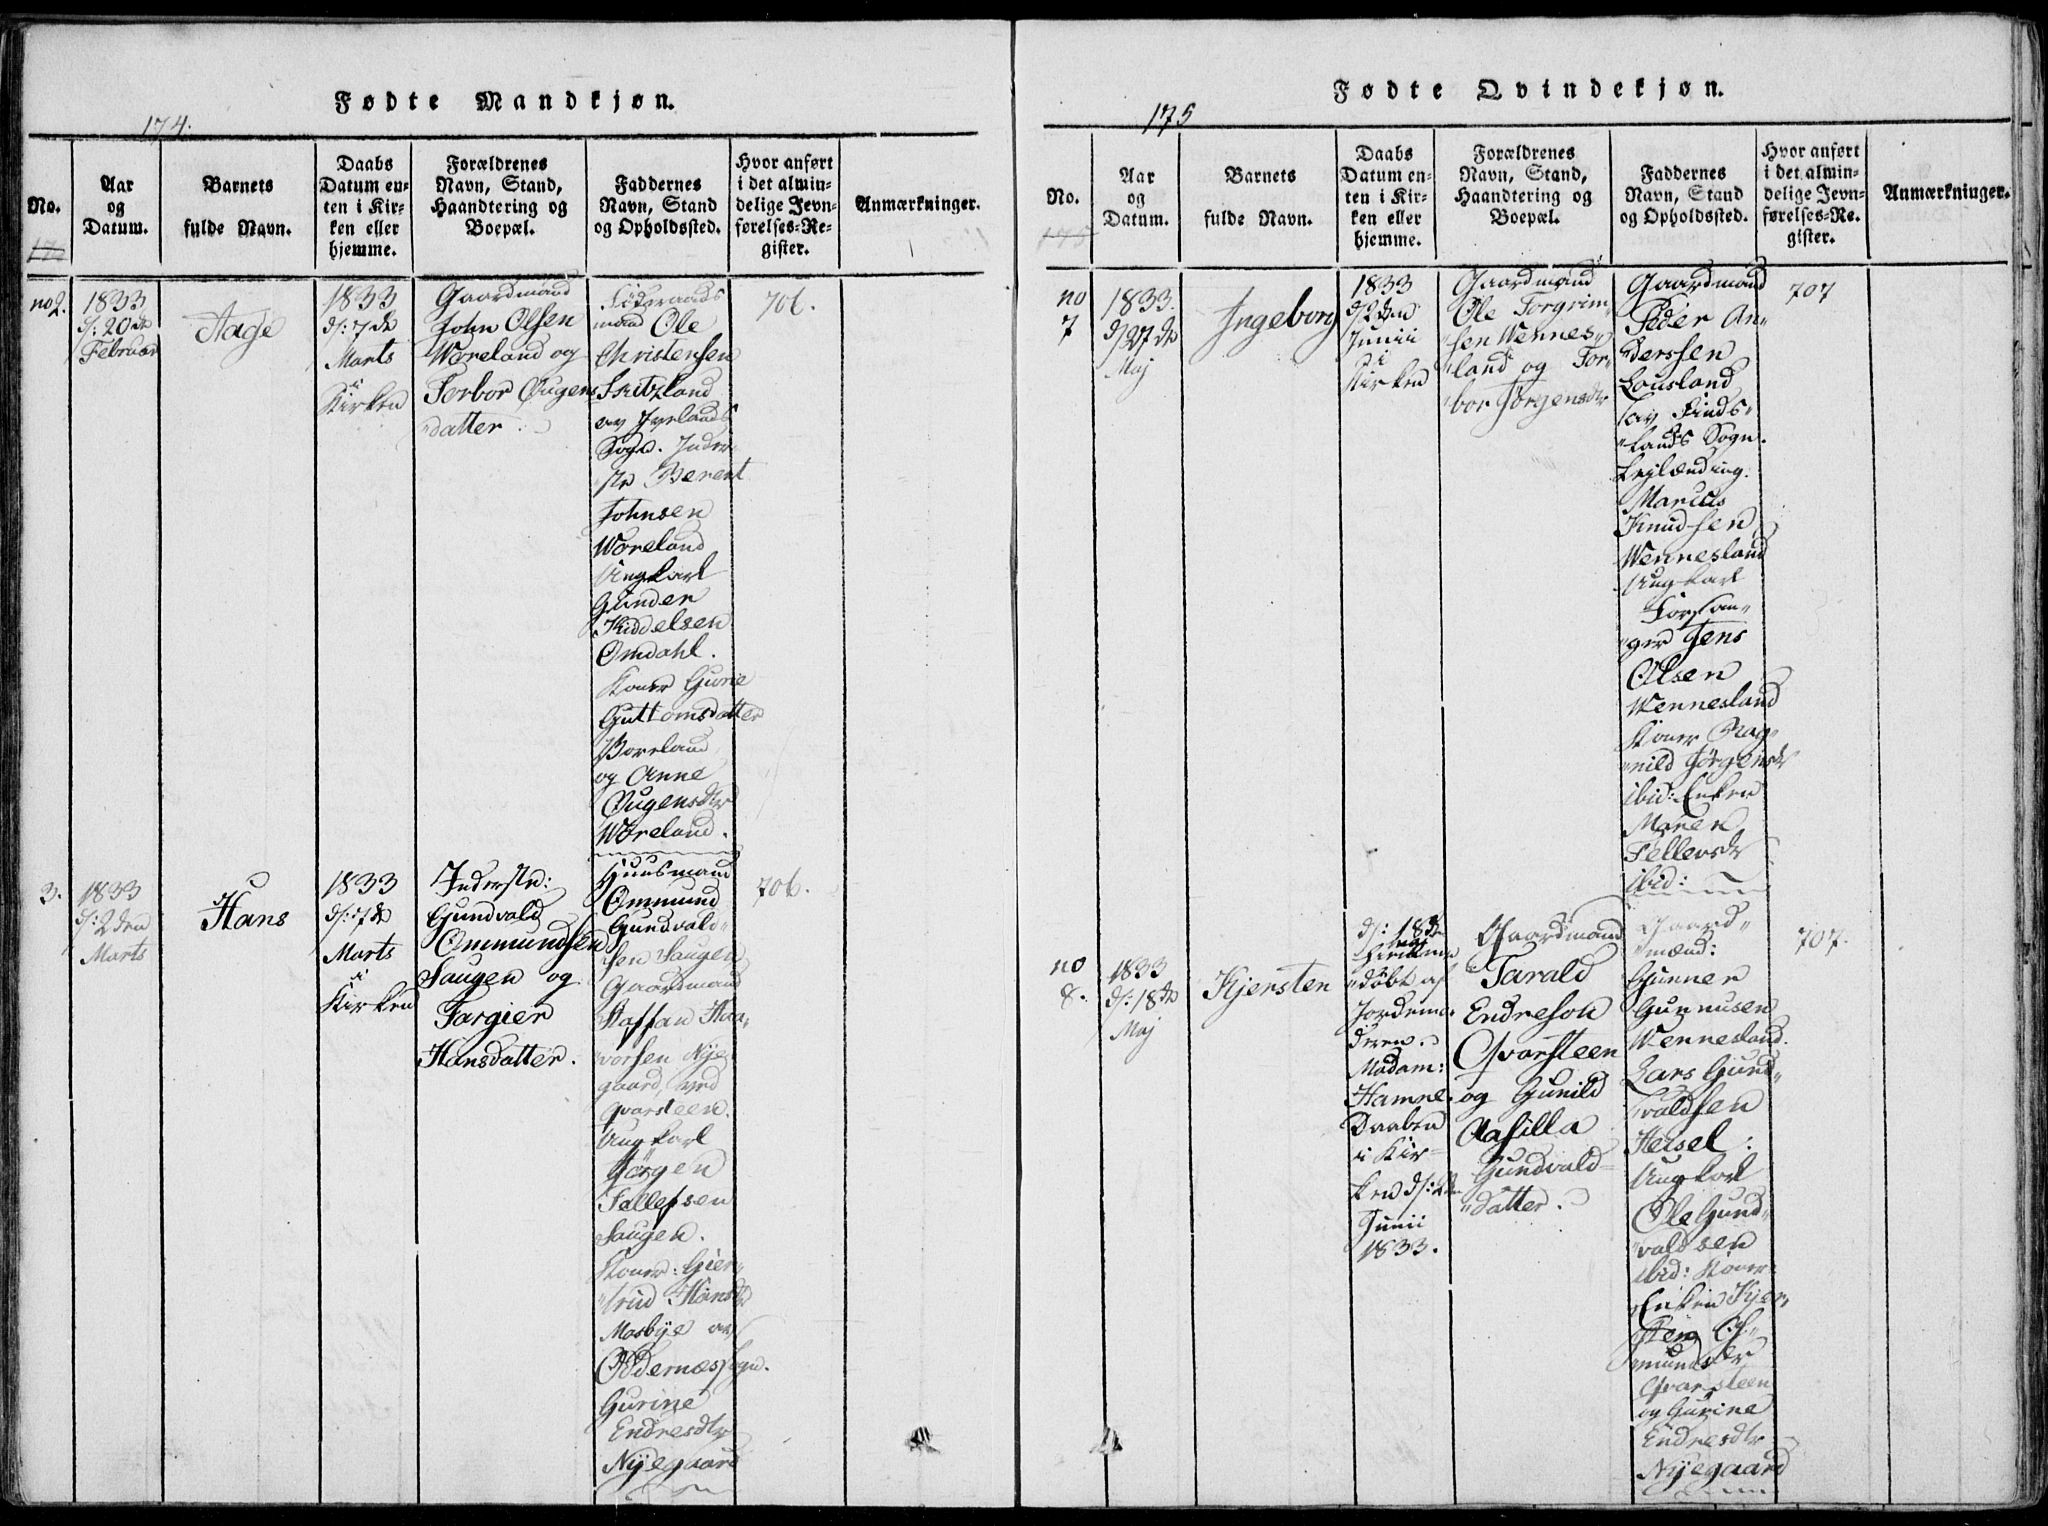 Fødte Mandkjøn.
174.
No.
Aar
og
Datum.
Barnets
fulde Navn.
Daabs
Datum en-
ten i Kir-
ken eller
hjemme.
Forældrenes
Navn, Stand,
Haandtering og
Boepæl.
Faddernes
Navn, Stand
og Opholdssted.
Hvor anført
i det almin-
delige Jevn-
førelses-Re-
gister.
Anmærkninger.
no 2.
1833
d: 20de
Februar
Aage
1833
d: 7de
Marts
i
Kirken
Gaardmand
John Olsen
Woreland og
Torbor Øugens
datter.
mand Ole
Christensen
av Iverlands
Sogn. Inder
str Berent
Johnsen
Woreland
Ungkarl
Gunder
Kiddelsen
Omdahl.
Koner Gurie
Guttomsdatter
Boreland
og Anne
Øugensdtr
Woreland.
706.
3.
1833
d: 2den
Marts
Hans
1833
d: 7de
Marts
i
Kirken
Inderstr:
Gundvald
Ommundsen
Saugen og
Targier
Hansdatter.
Huusmand
Ommund
Gundvald-
sen Saugen
Gaardmand
Staffan Haa-
vorsen Nye
gaard, ved
Qvarsteen.
Ungkarl
Jørgen
Tallefsen
Saugen.
Koner: Gier-
trud Hansdtr
Mosbye av
Oddernæs Sogn.
Gurine
Endresdtr
Nyegaard
706.
Fødte Qvindekjøn.
175
No.
Aar
og
Datum.
Barnets
fulde Navn.
Daabs
Datum en-
ten i Kir-
ken eller
hjemme.
Forældrenes
Navn, Stand,
Haandtering og
Boepæl.
Faddernes
Navn, Stand
og Opholdssted.
Hvor anført
i det almin-
delige Jevn-
førelses-Re-
gister.
Anmærkninger.
no
7
1833.
d/27de
Maj
Ingeborg
1833
d/2den
Junii
i
Kirken
Gaardmand
Ole Torgrim-
sen Wennes-
land og Tor-
bor Jørgensdtr
Gaardmand
Peder An-
derssen
Lousland
av Finds-
lands Sogn.
Marcus
Knudsen
Wennesland
Ungkarl
Forsan-
ger Jens
Olsen
Wennesland
Koner Rag-
nild Jørgensdtr
ibid: Enken
Maren
Tellevsdtr
ibid:
707
no
8.
1833
d: 18de
Maj
Kjersten
d: 18de
Maj
hjemme
døbt af
Jordemo-
deren
Madam:
Hamne.
Daaben
i Kir-
ken d: 2den
Junii
1833.
Gaardmand
Tarald
Endreson
Qvarsteen
og Gunild
Aasilla
Gundvald-
datter.
Gaard-
mænd:
Gunner
Gunnusen
Wennesland.
Lars Gund-
valdsen
Heisel:
Ungkarl
Ole Gund-
valdsen
ibid: Koner
Enken Kjer-
sten Os-
mundsdtr
Qvarsteen
og Gurine
Endresdtr
Nyegaard
707.